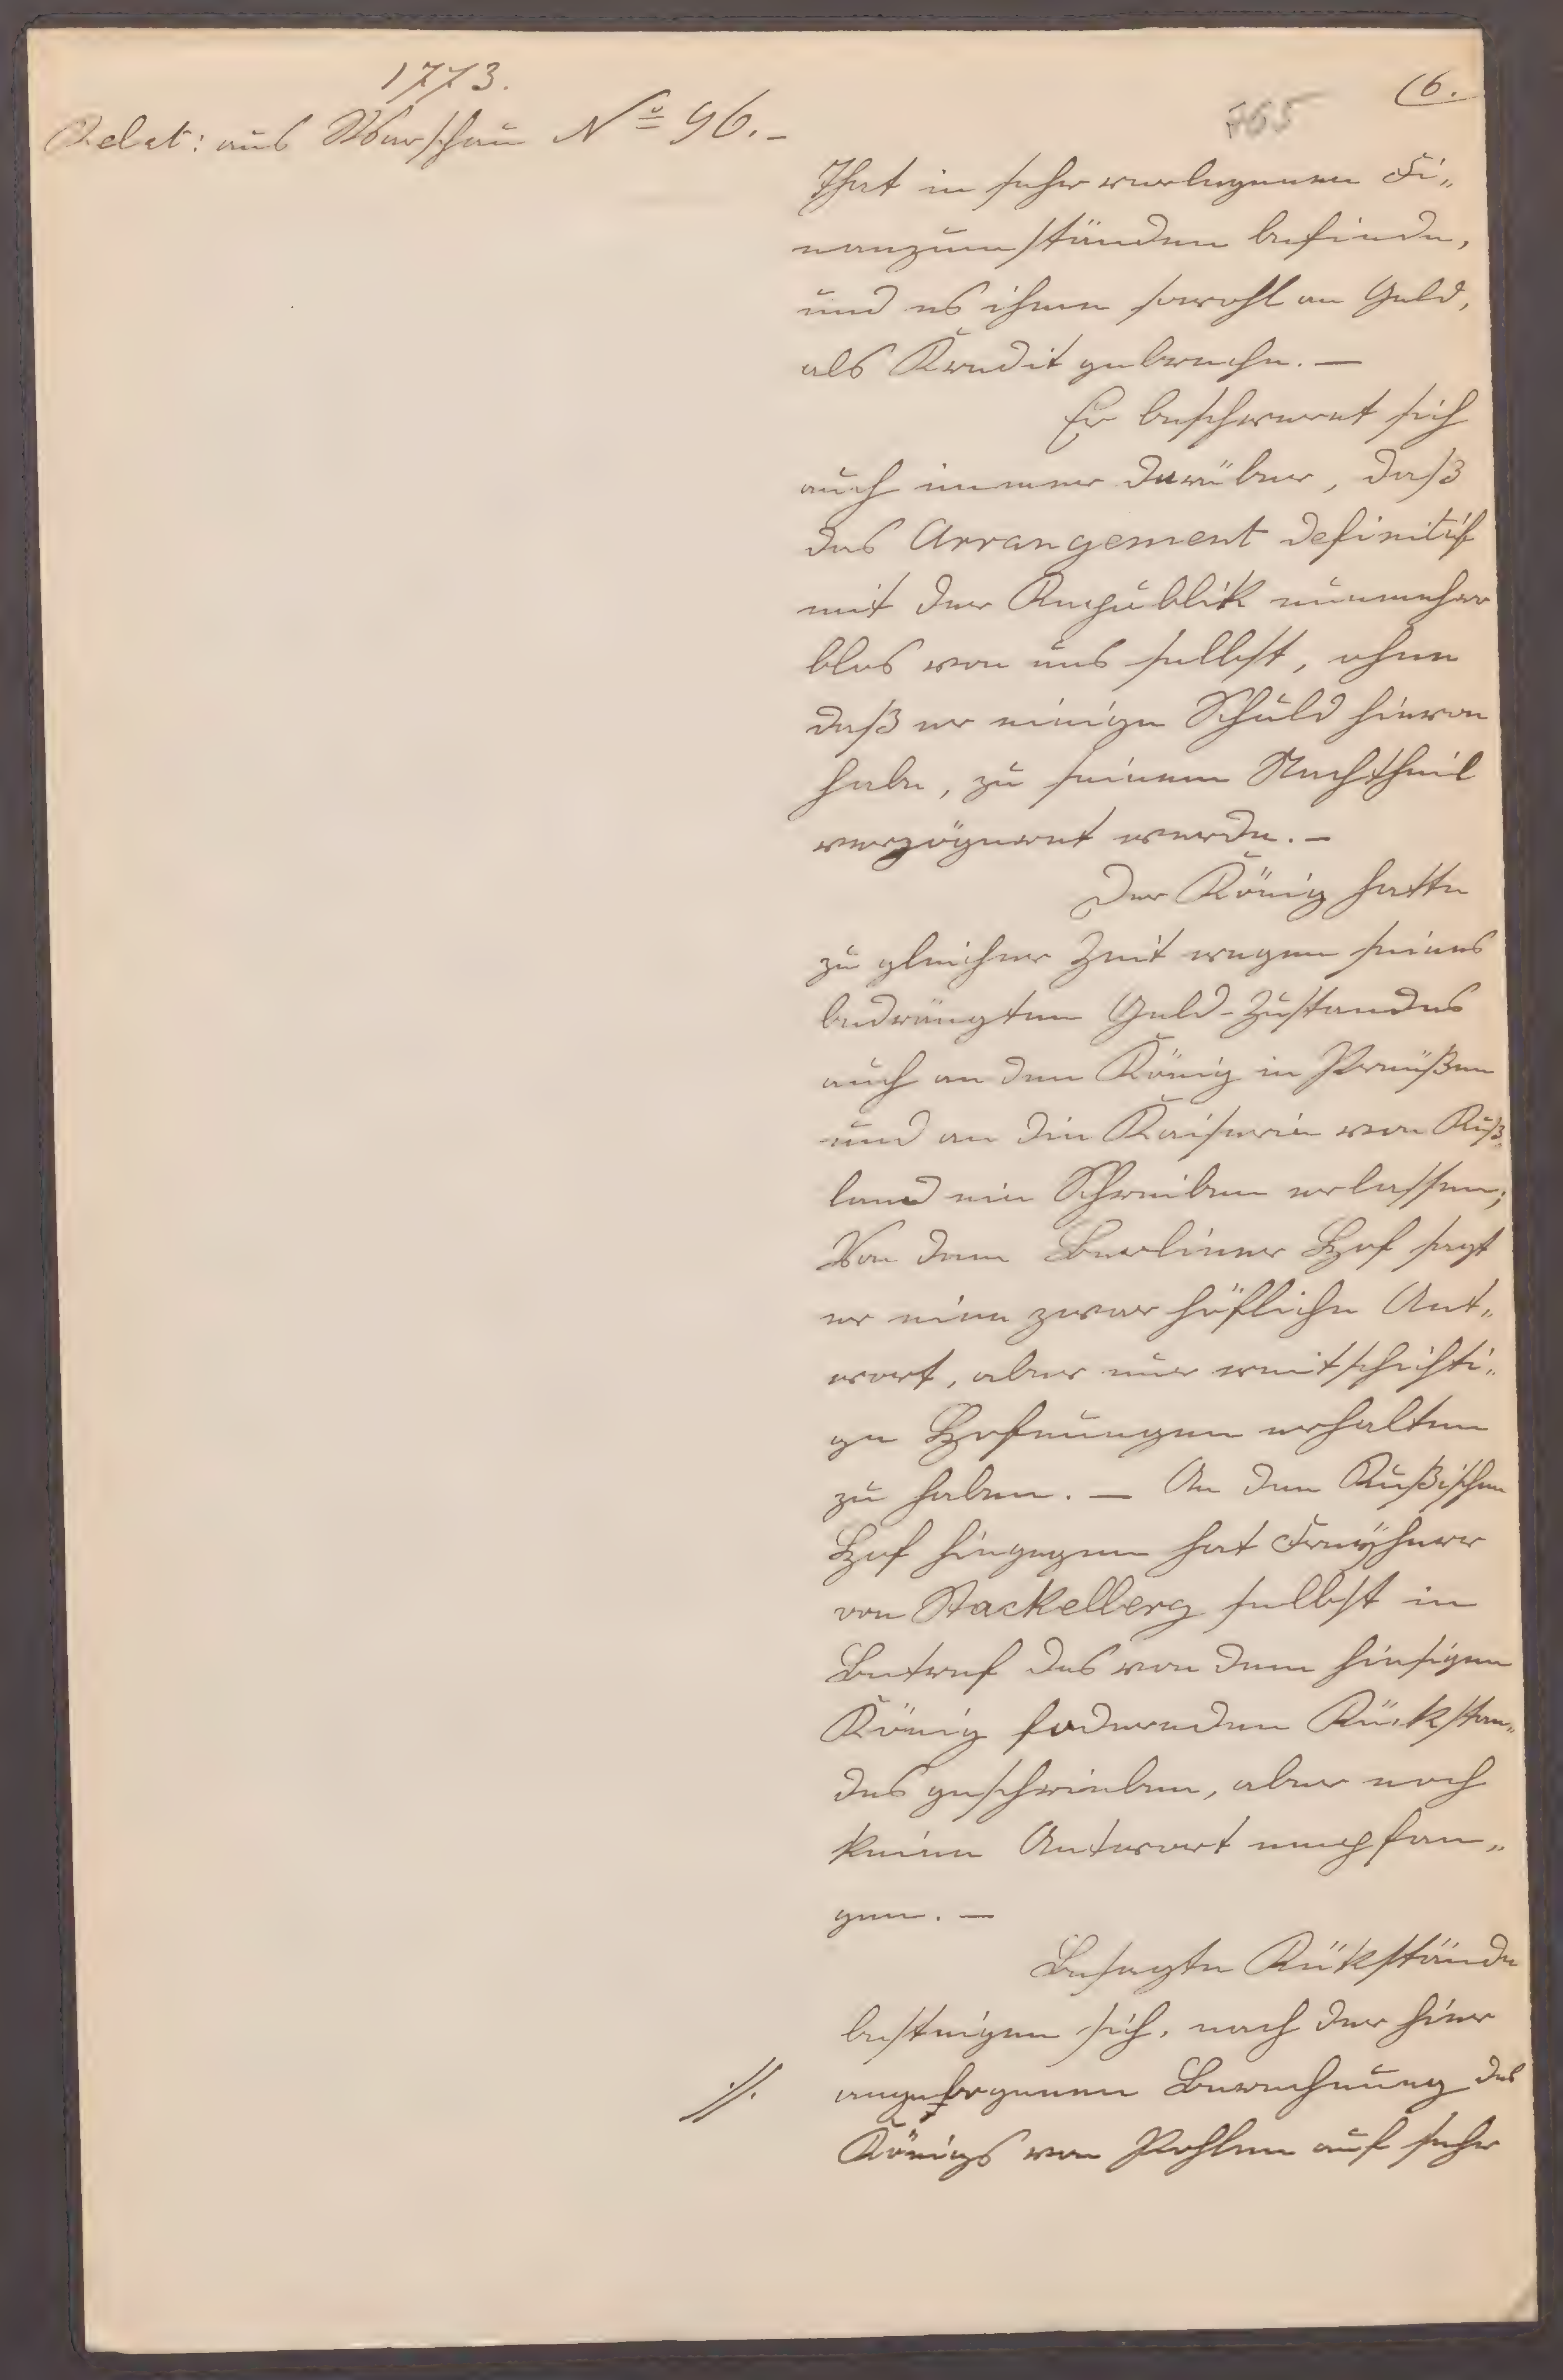 1773.
Relat: aus Warschau No 96.-
(6.
765
That in sehr verlegenen Fi„
nanzumständen befinde,
und es ihme sowohl an Geld,
als Kredit gebreche. —
Er beschweret sich
auch immer darüber, daß
das Arrangement definitif
mit der Republik nunmehro
blos von uns selbst, ohne
daß er einige Schuld hievon
habe, zu seinem Nachtheil
verzögeret werde. —
Der König hatte
zu gleicher Zeit wegen seines
bedrängten Geld-Zustandes
auch an den König in Preußen
und an die Kaiserin von Ruß„
land ein Schreiben erlassen;
Von dem Berliner Hof sagt
er eine zwar höfliche Ant„
wort, aber nur weitschichti„
ge Hofnungen erhalten
zu haben. — An den Rußischen
Hof hingegen hat Freÿherr
von Stackelberg selbst in
Betref des von dem hiesigen
König foderenden Rückstan„
des geschrieben, aber noch
keine Antwort empfan„
gen. —
Besagte Rükstände
besteigen sich, nach der hier
·//. angebogenen Berechnung des
Königs von Pohlen auf sehr